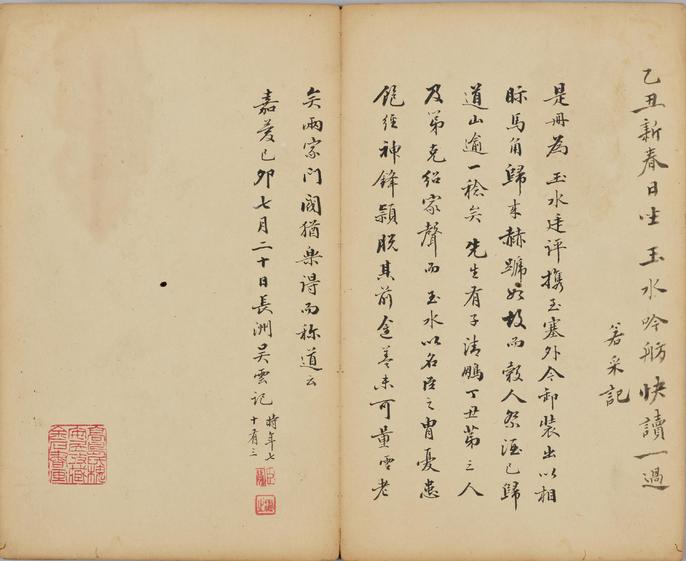 乙丑新春日坐玉水吟舫快讀一過
采記
是冊為玉水廷評携至塞外今卸裝出以相
眎馬角歸来赫蹏如故而穀人祭酒已歸
道山逾一稔矣先生有子清鵬丁丑第三人
及第克紹家聲而玉水以名臣之胄憂患
飽經神鋒穎脫其前途蓋未可量雲老
矣兩家門閥猶樂得而称道云
嘉慶己卯七月二十日長洲吳雲記
時年七
十有三